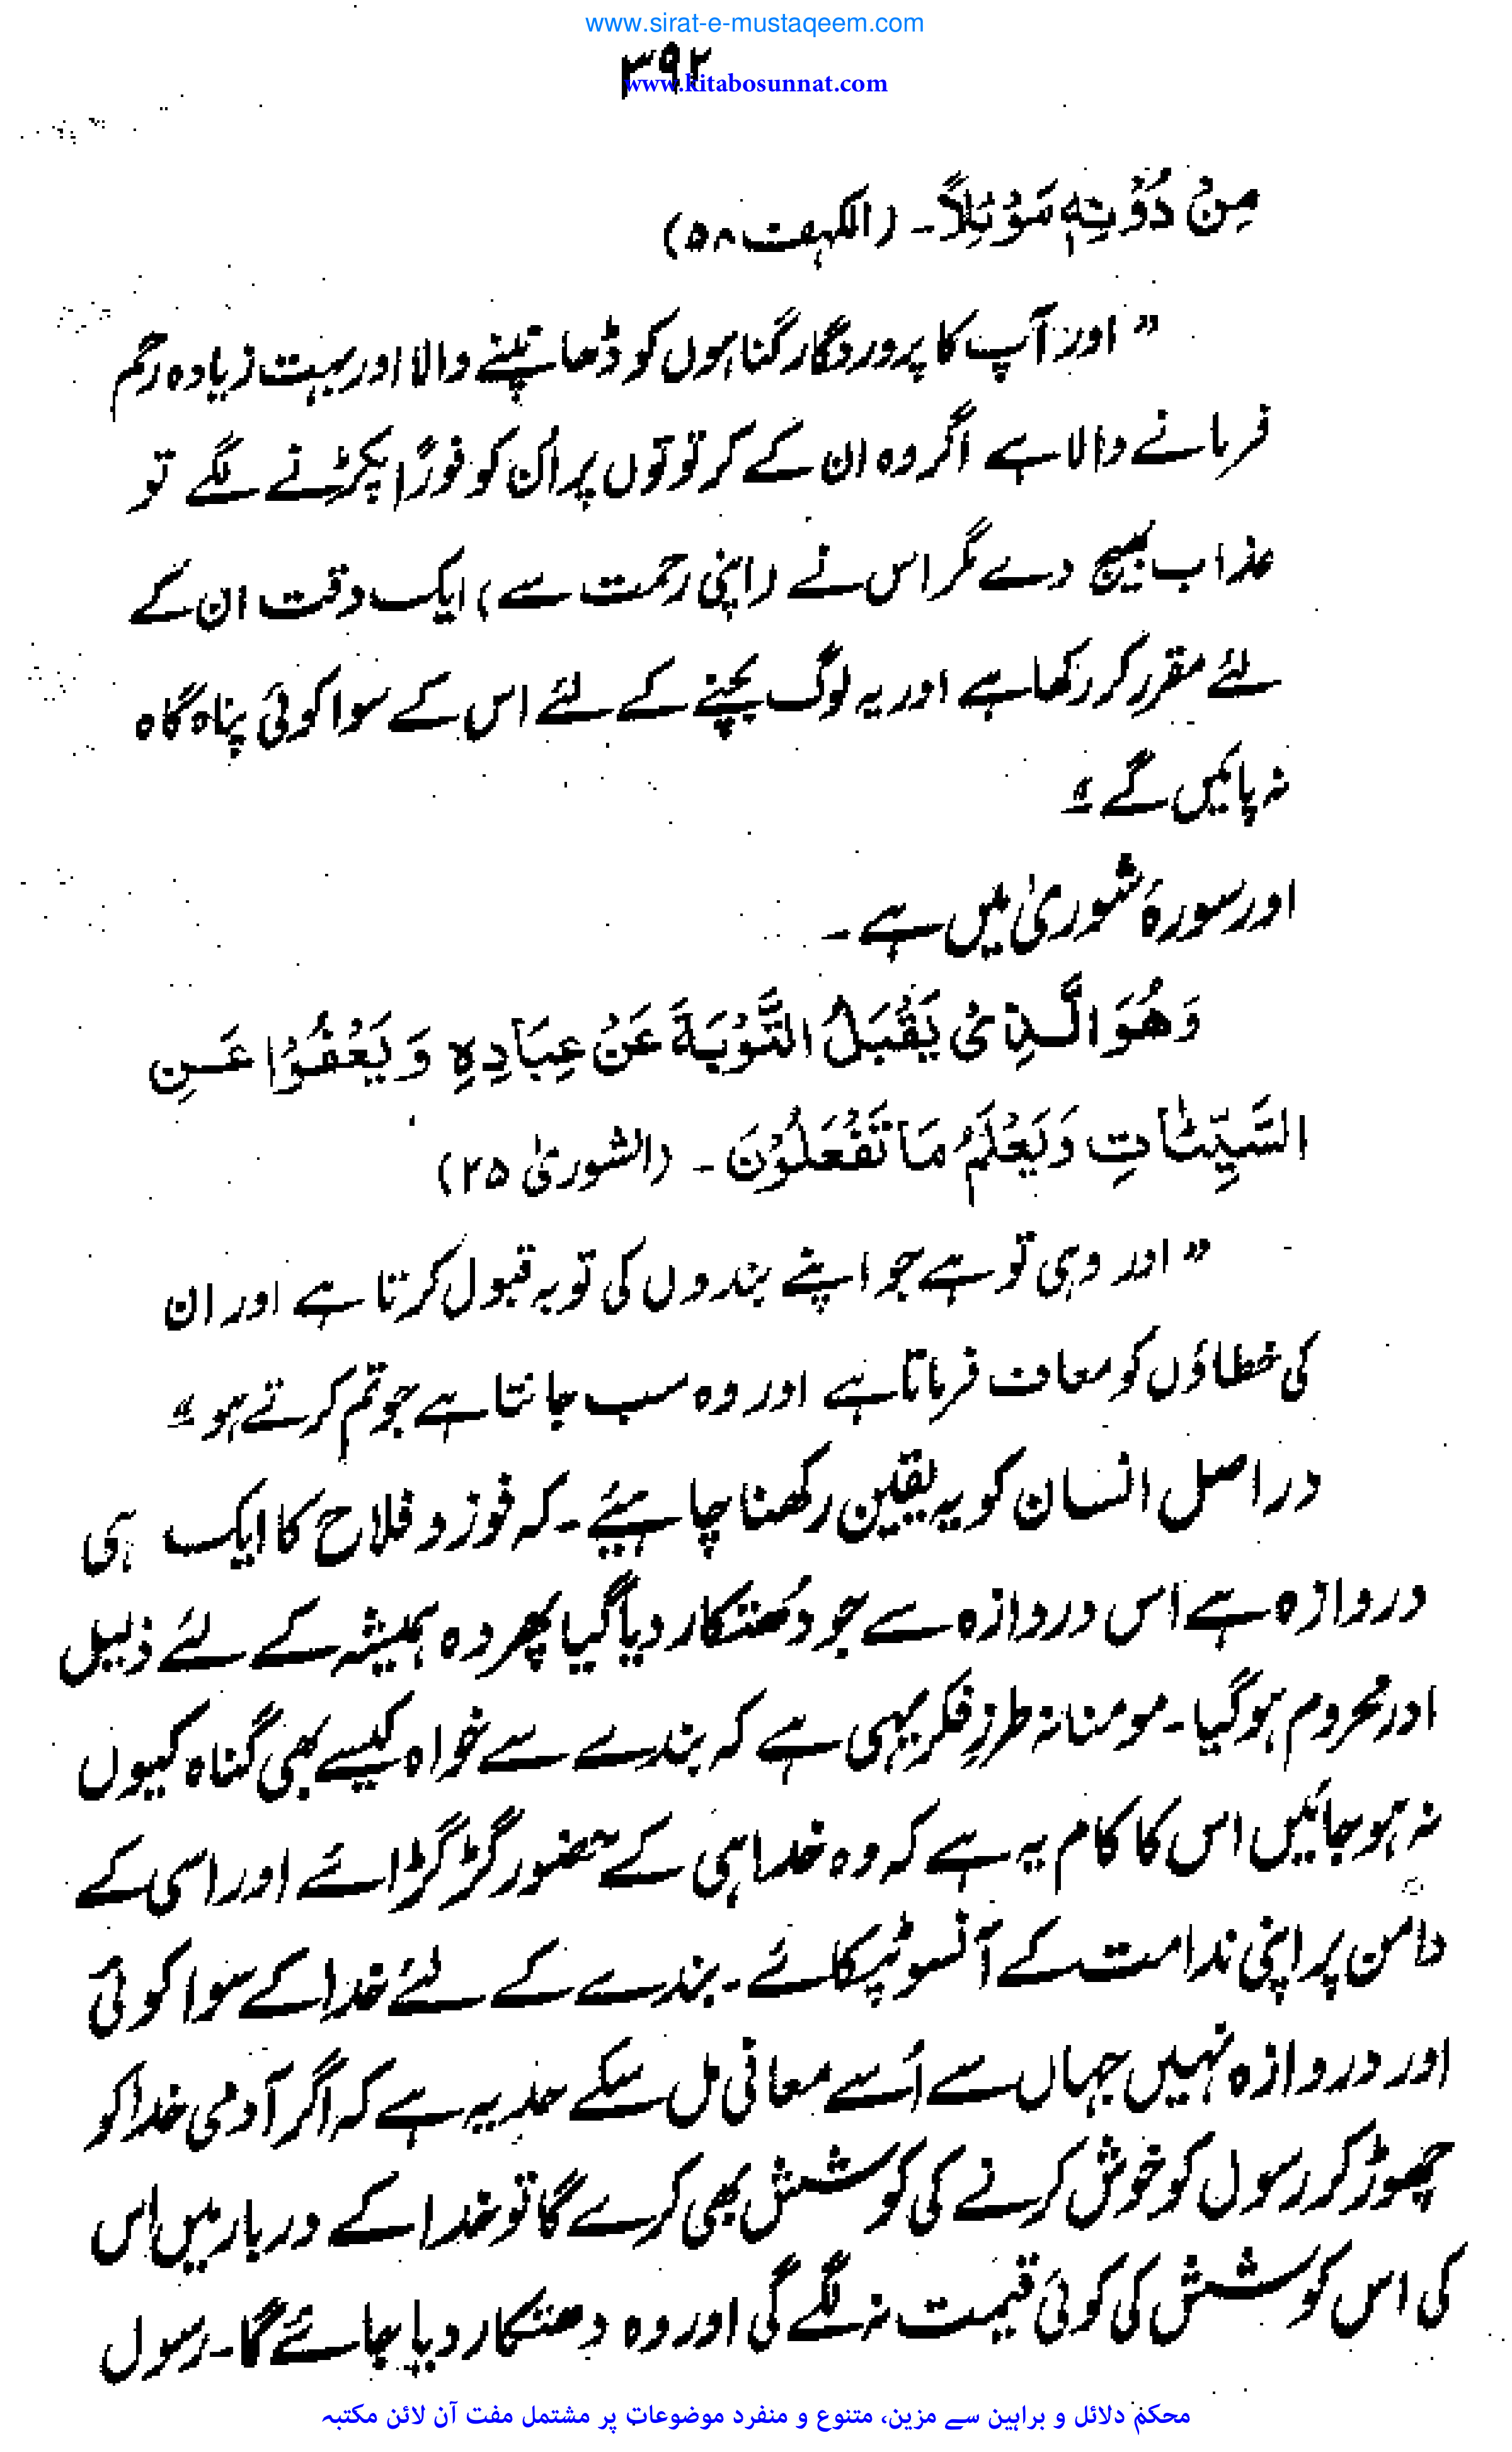 www.sirat-e-mustaqeem.com
۳۹۲
www.kitabosunnat.com
مِنْ دُوْنِهٖ مَوْئِلاً۔ (الکہف ۵۸)
” اور آپ کا پروردگار گناہوں کو ڈھانپنے والا اور بہت زیادہ رحم
فرمانے والا ہے اگر وہ ان کے کرتوتوں پر اُن کو فوراً پکڑنے لگے تو
عذاب بھیج دے مگر اس نے (اپنی رحمت سے) ایک وقت ان کے
لئے مقرر کر رکھا ہے اور یہ لوگ بچنے کے لئے اس کے سوا کوئی پناہ گاہ
نہ پائیں گے ؎“
اور سورۂ شوریٰ میں ہے ۔
وَهُوَ الَّذِیْ یَقْبَلُ التَّوْبَةَ عَنْ عِبَادِهٖ وَ یَعْفُوْا عَنِ
السَّیِّئَاتِ وَیَعْلَمُ مَا تَفْعَلُوْنَ ۔ (الشوریٰ ۲۵)
” اور وہی تو ہے جو اپنے بندوں کی توبہ قبول کرتا ہے اور ان
کی خطاؤں کو معاف فرماتا ہے اور وہ سب جانتا ہے جو تم کرتے ہو “
دراصل انسان کو یہ یقین رکھنا چاہیئے ۔ کہ فوز و فلاح کا ایک ہی
دروازہ ہے اس دروازہ سے جو دُھتکار دیا گیا پھر وہ ہمیشہ کے لئے ذلیل
اور محروم ہو گیا ۔ مومنانہ طرزِ فکر یہی ہے کہ بندے سے خواہ کیسے بھی گناہ کیوں
نہ ہو جائیں اس کا کام یہ ہے کہ وہ خدا ہی کے حضور گڑگڑائے اور اسی کے
دامن پر اپنی ندامت کے آنسو ٹپکائے ۔ بندے کے لئے خدا کے سوا کوئی
اور دروازہ نہیں جہاں سے اُسے معافی مل سکے حد یہ ہے کہ اگر آدمی خدا کو
چھوڑ کر رسول کو خوش کرنے کی کوشش بھی کرے گا تو خدا کے دربار میں اس
کی اس کوشش کی کوئی قیمت نہ لگے گی اور وہ دھتکار دیا جائے گا ۔ رسول
محکم دلائل و براہین سے مزین، متنوع و منفرد موضوعات پر مشتمل مفت آن لائن مکتبہ